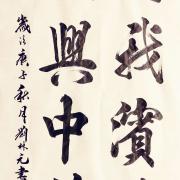 我
興中
歲次庚子秋月劉林元書